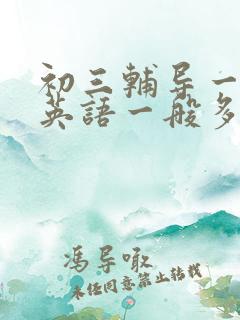 初三輔导一
英語一般多
馮导噉
未经同意禁止转载